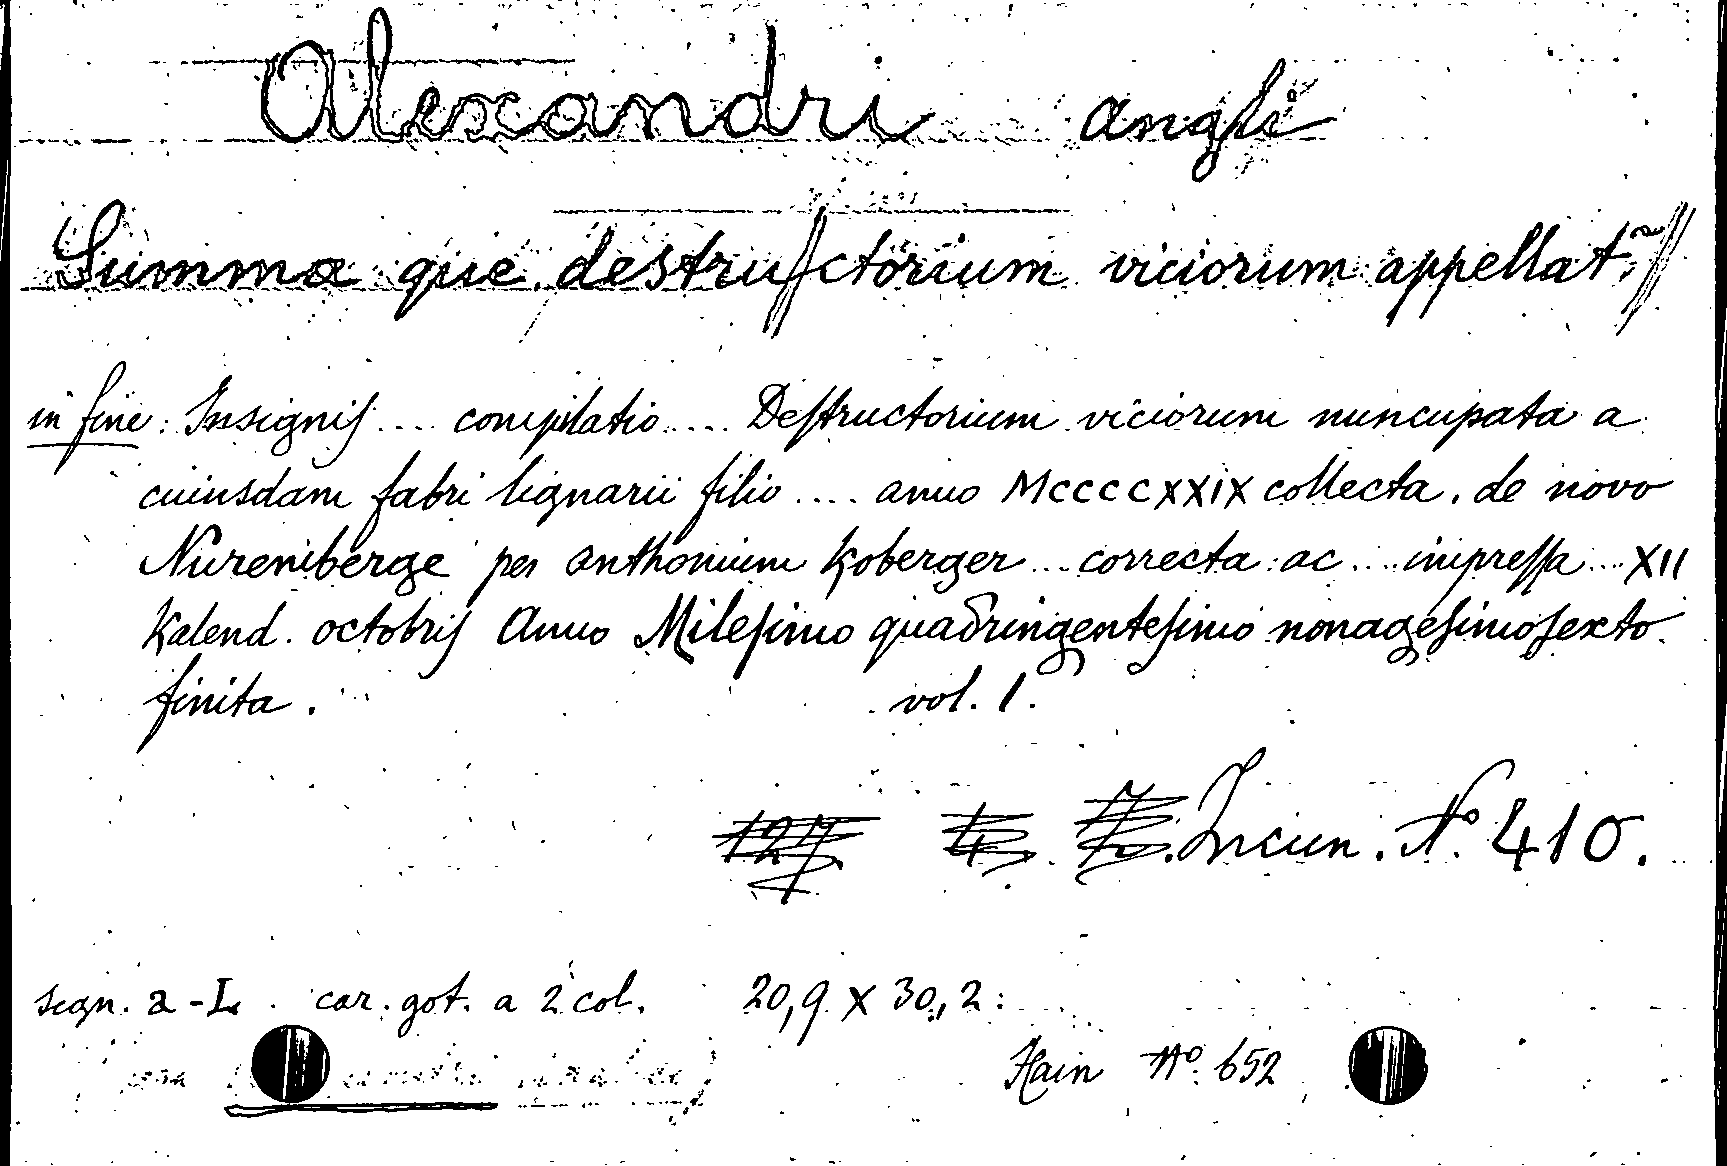 Alexandri angli
Summa que destru//ctorium viciorum appellat~//
in fine: Insignis .... compilatio .... Destructorium viciorum nuncupata a
cuiusdam fabri lignarii filio .... anno MCCCCXXIX collecta. de novo
Nuremberge per anthonium Koberger ... correcta ac .... impressa ... XII
Kalend. octobris Anno Milesimo quadringentesimo nonagesimosexto
finita. vol. 1.
Incun. Nº 410.
segn. a - L. car. got. a 2 col. 20,9 X 30,2.
Hain Nº. 652